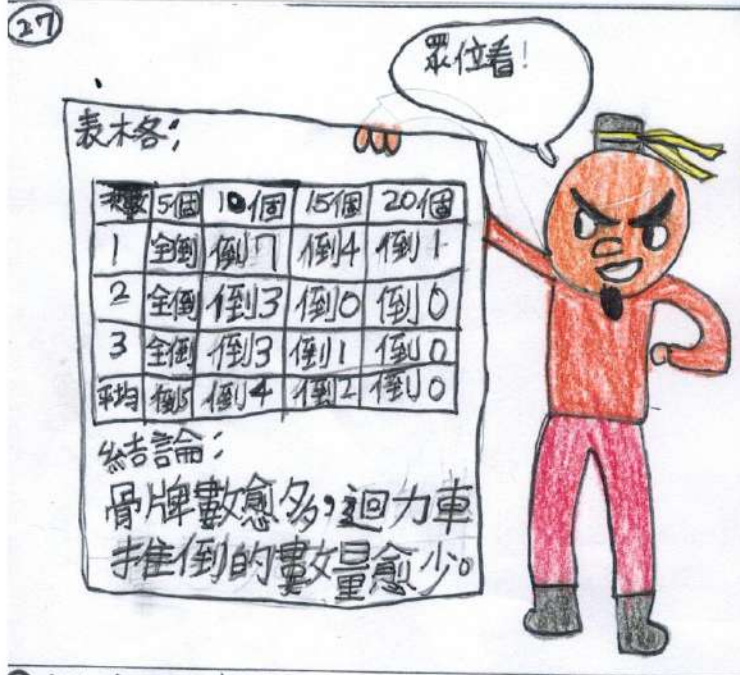 27
眾位看!
表格:
次數 5個 10個 15個 20個
1 全倒 倒7 倒4 倒1
2 全倒 倒3 倒0 倒0
3 全倒 倒3 倒1 倒0
平均 倒5 倒4 倒2 倒0
結論:
骨牌數愈多,迴力車
推倒的數量愈少。